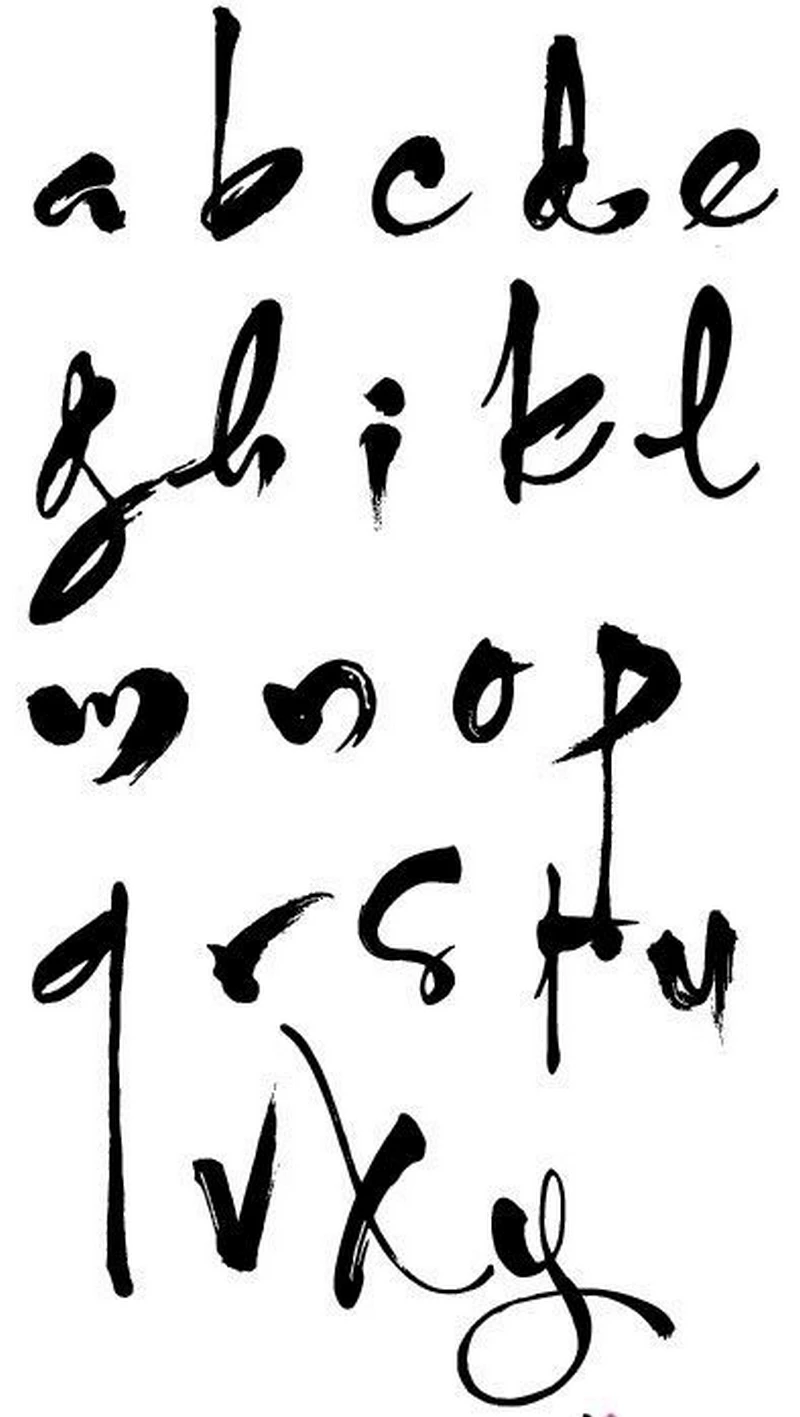 a b c d e
g h i k l
m n o p
q r s t u
v x y